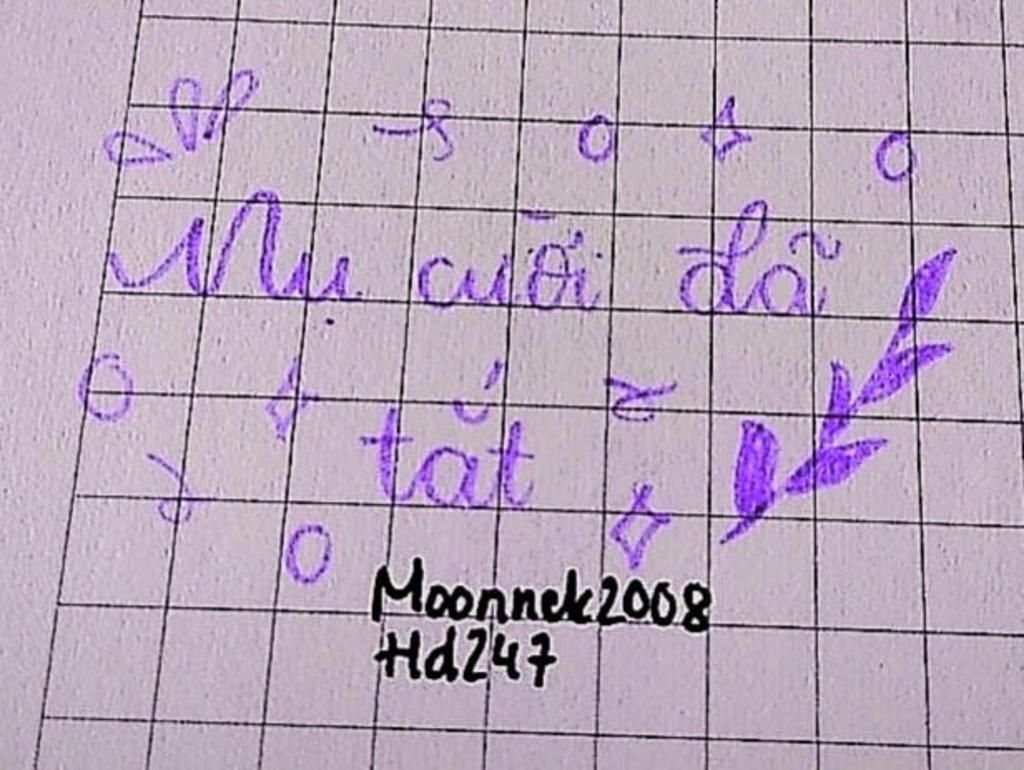 Nụ cười đã
tắt
Moonnek2008
Hd247